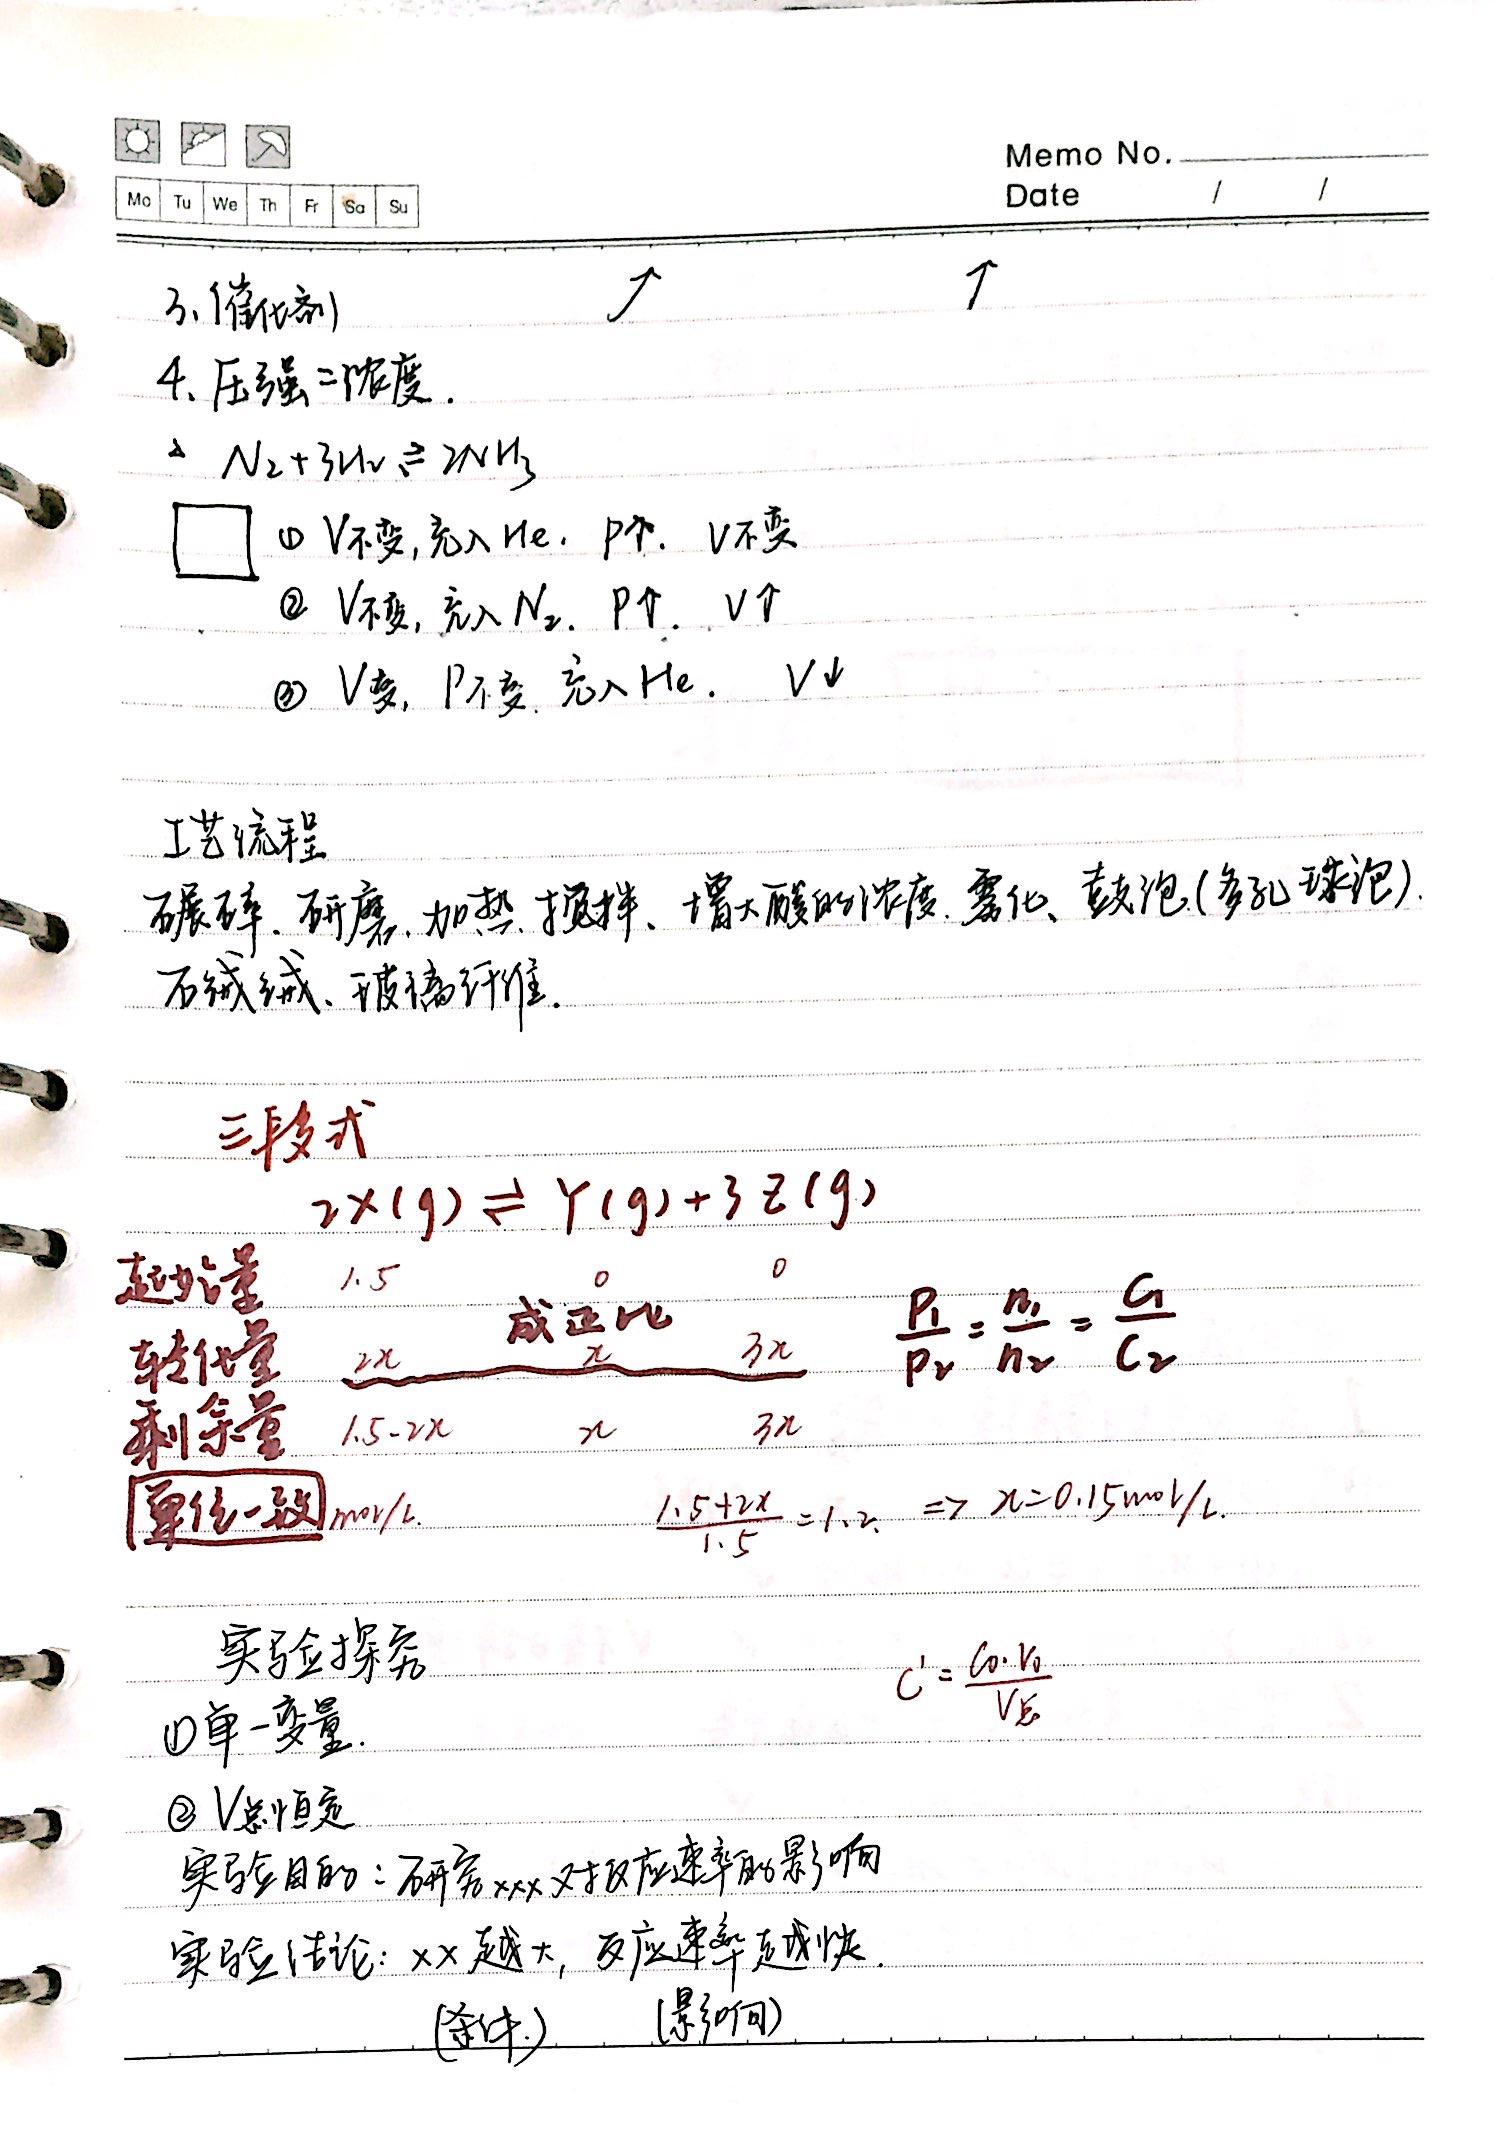 Memo No.
Mo Tu We Th Fr Sa Su
Date / /
3、催化剂 ↗ ↑
4、压强=浓度.
N₂+3H₂⇌2NH₃
① V不变,充入He. P↑. V不变
② V不变,充入N₂. P↑. V↑
③ V变, P不变. 充入He. V↓
工艺流程
碾碎、研磨、加热、搅拌、增大酸的浓度、雾化、鼓泡(多孔球泡).
石绒绒、玻璃纤维.
三段式
2X(g)⇌Y(g)+3Z(g)
起始量 1.5 0 0
成正比
转化量 2x x 3x
P₁/P₂=n₁/n₂=C₁/C₂
剩余量 1.5-2x x 3x
单位一致 mol/L. (1.5+2x)/1.5=1.2. => x=0.15mol/L.
实验探究
C'=C₀·V₀/V总
①单一变量.
② V总恒定
实验目的:研究xxx对反应速率的影响
实验结论:xx越大,反应速率越快.
(条件.) (影响)